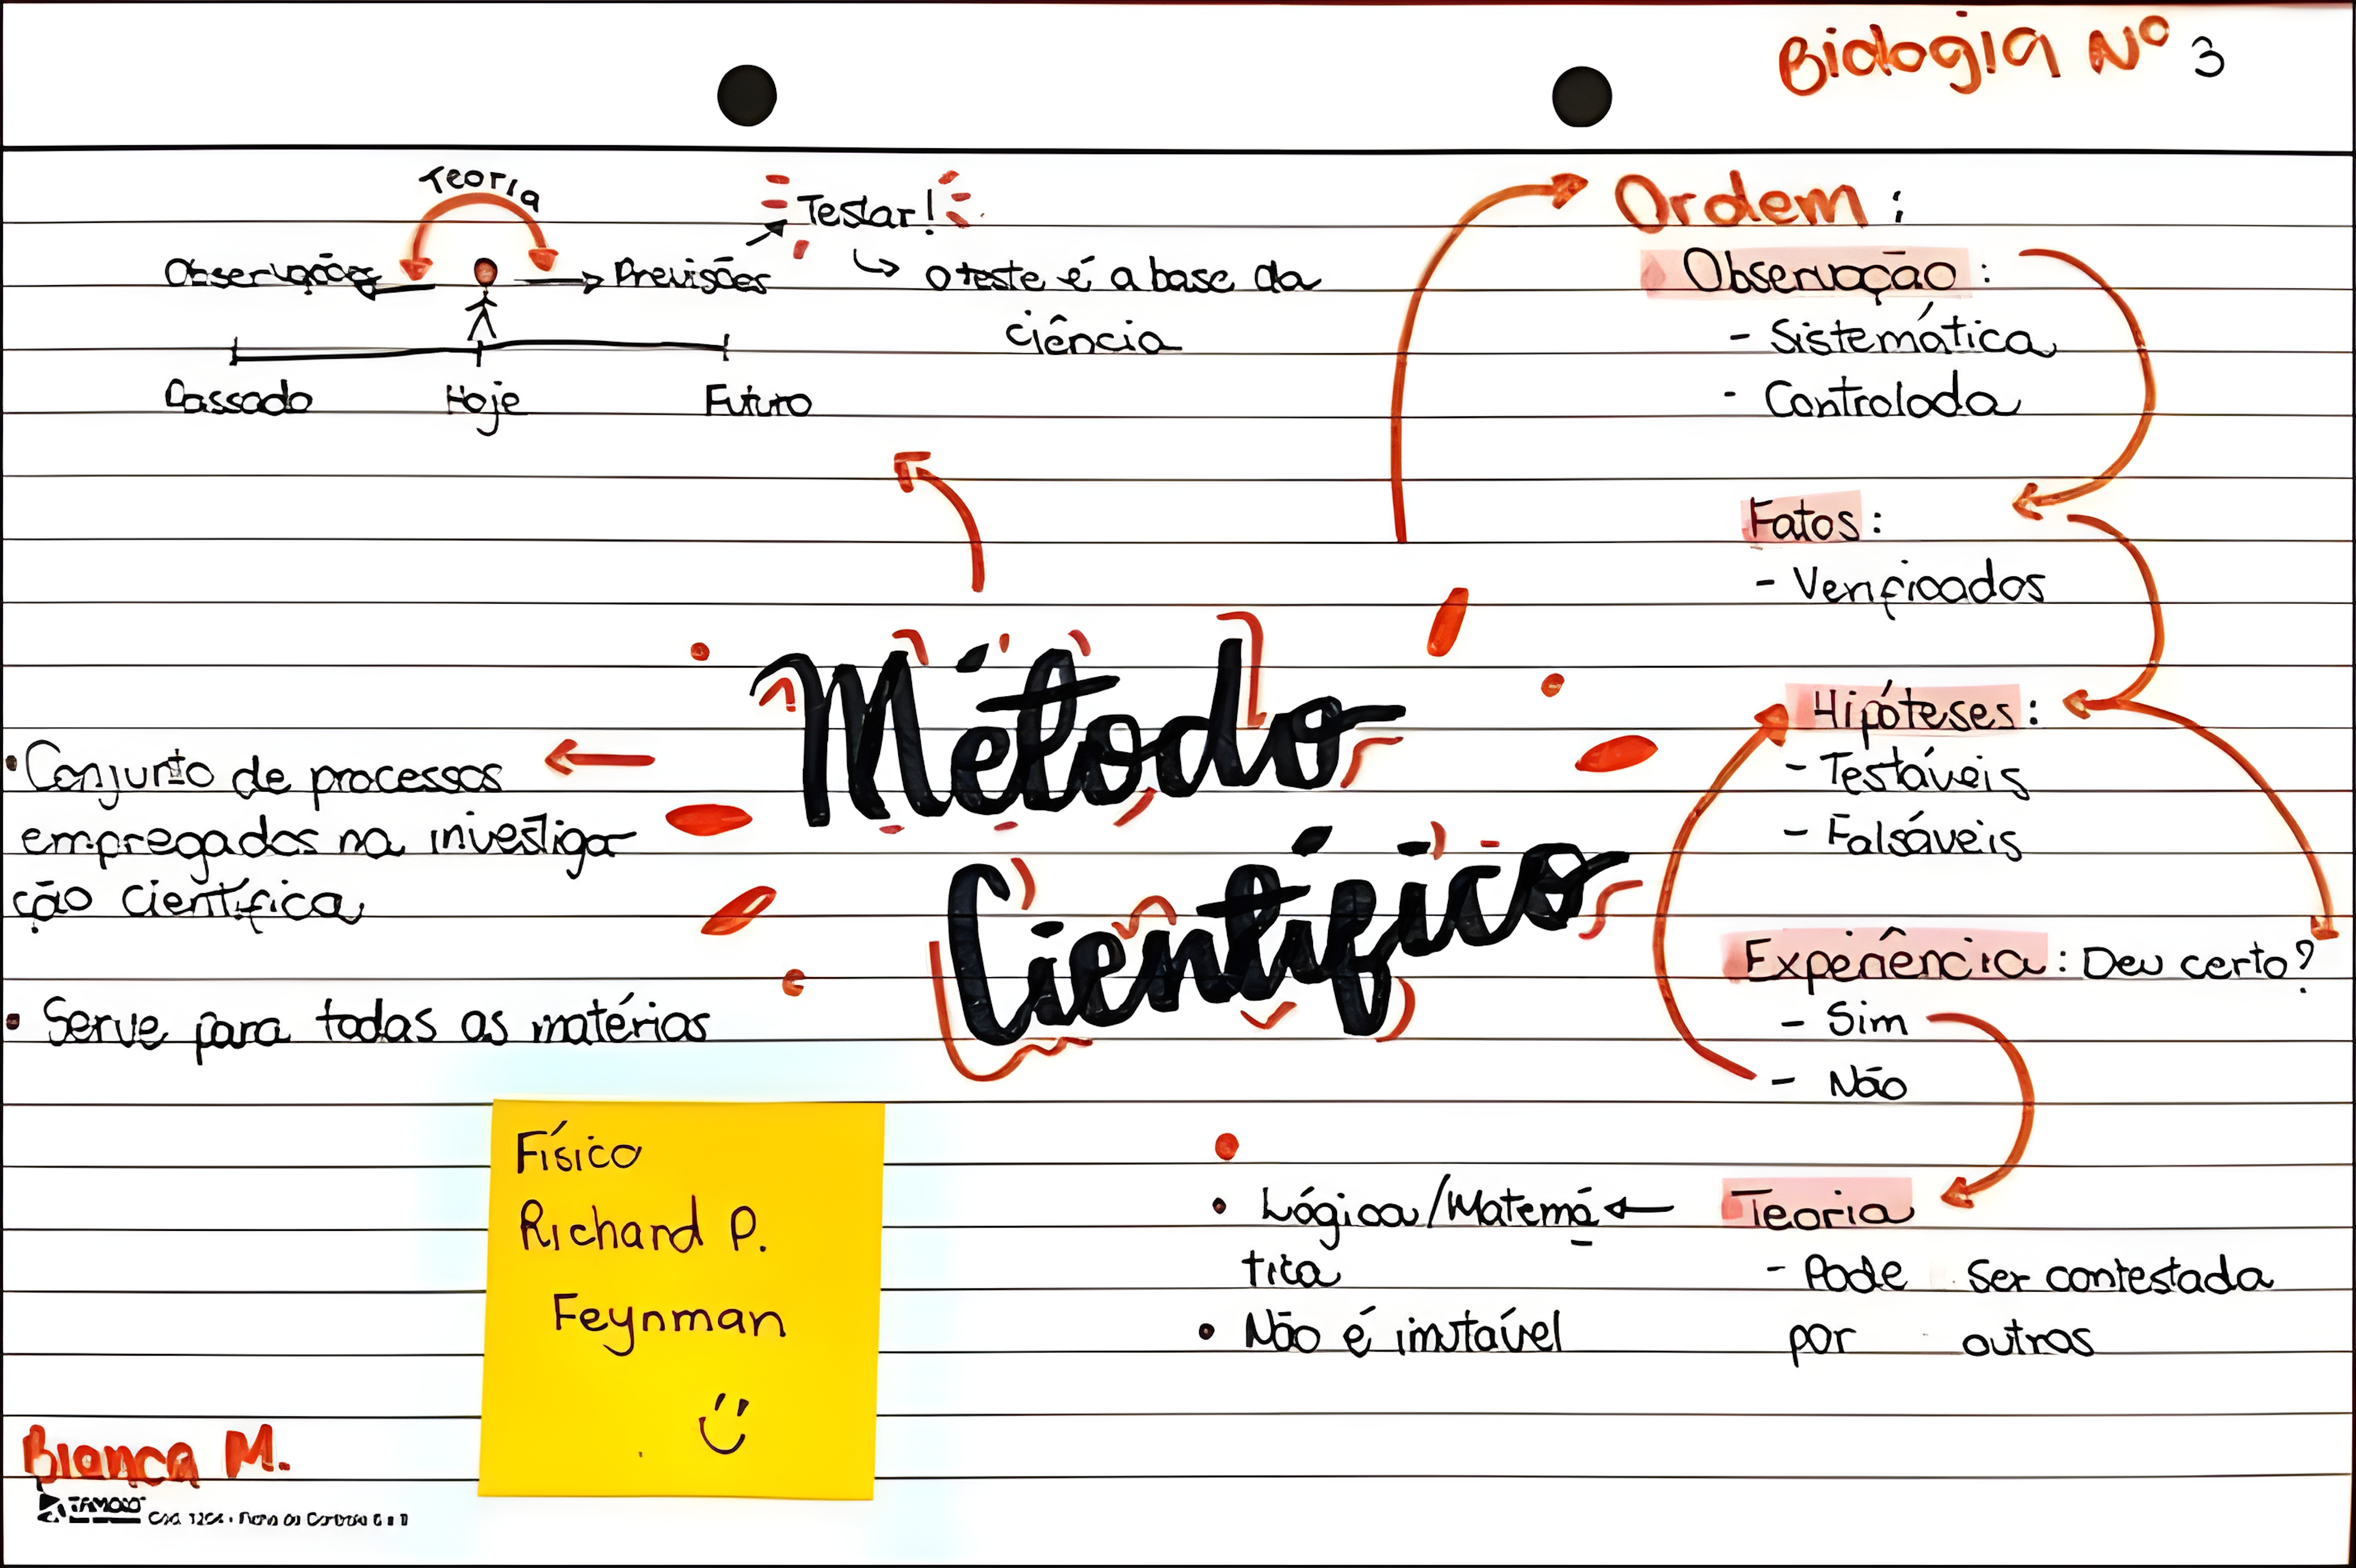 Biologia Nº 3
Teoria
Testar!
Observações
Previsões
o teste é a base da
ciência
Passado
Hoje
Futuro
Ordem:
Observação:
- Sistemática
- Controlada
Fatos:
- Verificados
Hipóteses:
- Testáveis
- Falsáveis
Experiência: Deu certo?
- Sim
- Não
Teoria
- Pode ser contestada
por outros
• Lógica/Matemá
tica
• Não é imutável
Método
Científico
• Conjunto de processos
empregados na investiga
ção científica
• Serve para todas as matérias
Físico
Richard P.
Feynman
Bianca M.